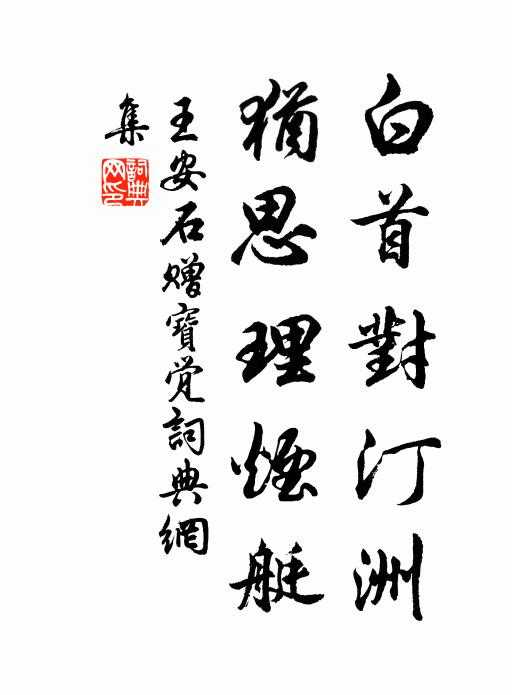 白首對汀洲
猶思理煙艇
王安石贈寶覚詞典網
集
詞典网印